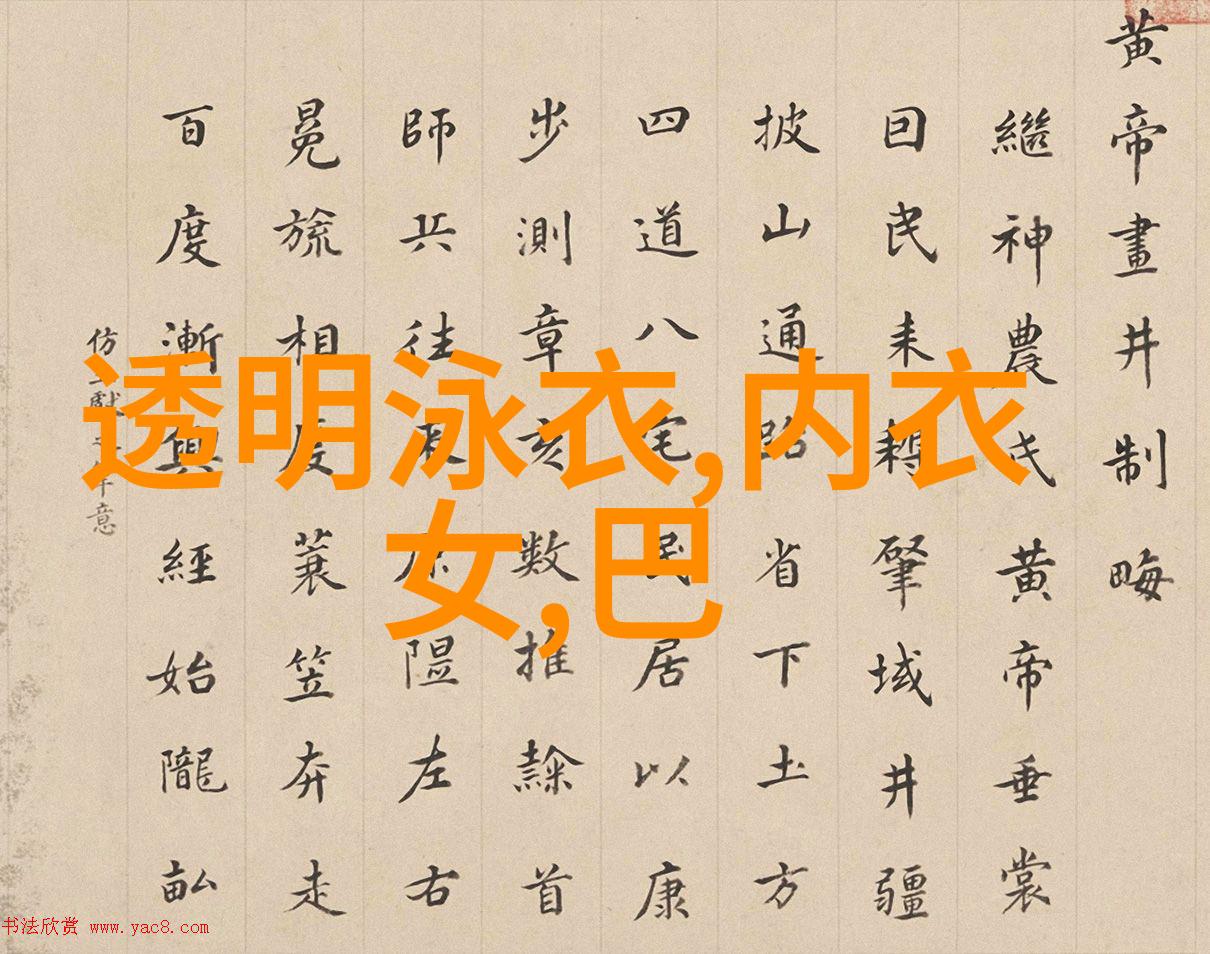 黄帝畫井制畮
繼神農氏黄帝垂裳
囙民耒耨肇域井疆
披山通路省下土方
四道八宅民居以康
步測章亥数推隸首
師兵往来原隰左右
冕旒相度蓑笠奔走
百度漸興經始隴畝
仿獻意
透明泳衣,内衣
女,巴
书法欣赏 www.yac8.com